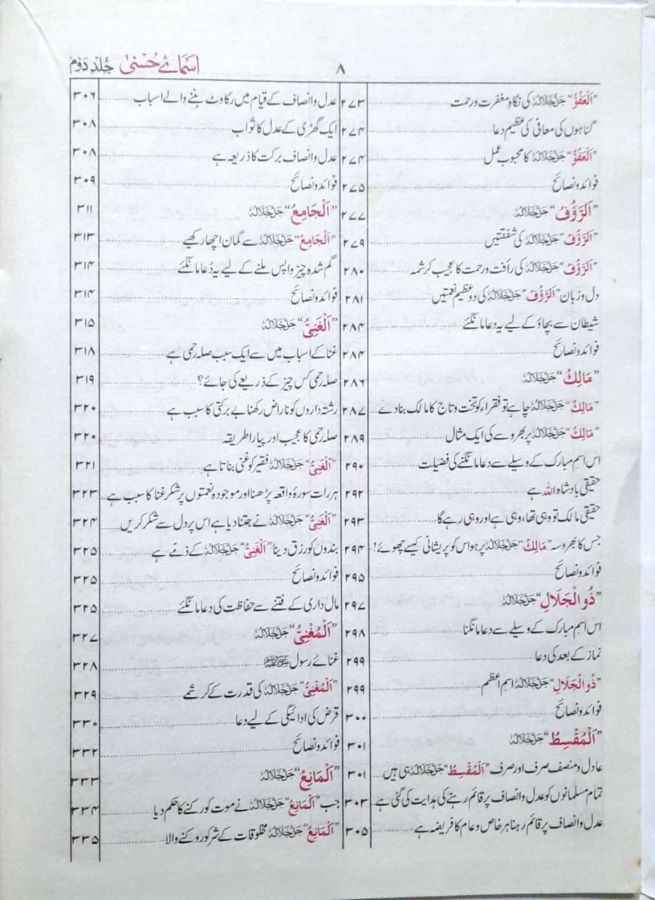 ۸ اسمائے حُسنیٰ جلد دَوُم
"اَلْعَفُوُّ" جَلَّ جَلَالُہٗ کی نگاہِ مغفرت و رحمت ۲۷۳
گناہوں کی معافی کی عظیم دعا ۲۷۴
"اَلْعَفُوُّ" جَلَّ جَلَالُہٗ کا محبوب عمل ۲۷۴
فوائد و نصائح ۲۷۵
"اَلرَّؤُفُ" جَلَّ جَلَالُہٗ ۲۷۷
"اَلرَّؤُفُ" جَلَّ جَلَالُہٗ کی شفقتیں ۲۷۹
"اَلرَّؤُفُ" جَلَّ جَلَالُہٗ کی رأفت و رحمت کا عجیب کرشمہ ۲۸۰
دل و زبان "اَلرَّؤُفُ" جَلَّ جَلَالُہٗ کی دو عظیم نعمتیں ۲۸۱
شیطان سے بچاؤ کے لیے یہ دعا مانگئے ۲۸۴
فوائد و نصائح ۲۸۴
"مَالِكُ" جَلَّ جَلَالُہٗ ۲۸۶
"مَالِكُ" جَلَّ جَلَالُہٗ چاہے تو فقراء کو تخت و تاج کا مالک بنا دے ۲۸۷
"مَالِكُ" جَلَّ جَلَالُہٗ پر بھروسے کی ایک مثال ۲۸۹
اس اسمِ مبارک کے وسیلے سے دعا مانگنے کی فضیلت ۲۹۰
حقیقی بادشاہ اللہ ہے ۲۹۲
حقیقی مالک تو وہی تھا، وہی ہے اور وہی رہے گا ۲۹۳
جس کا بھروسہ "مَالِكُ" جَلَّ جَلَالُہٗ پر ہو اس کو پریشانی کیسے چھوئے! ۲۹۴
فوائد و نصائح ۲۹۵
"ذُو الْجَلَالِ" جَلَّ جَلَالُہٗ ۲۹۷
اس اسمِ مبارک کے وسیلے سے دعا مانگنا ۲۹۸
نماز کے بعد کی دعا ۲۹۹
"ذُو الْجَلَالِ" جَلَّ جَلَالُہٗ اسم اعظم ۲۹۹
فوائد و نصائح ۳۰۰
"اَلْمُقْسِطُ" جَلَّ جَلَالُہٗ ۳۰۱
عادل و منصف صرف اور صرف "اَلْمُقْسِطُ" جَلَّ جَلَالُہٗ ہی ہیں ۳۰۱
تمام مسلمانوں کو عدل و انصاف پر قائم رہنے کی ہدایت کی گئی ہے ۳۰۳
عدل و انصاف پر قائم رہنا ہر خاص و عام کا فریضہ ہے ۳۰۵
عدل و انصاف کے قیام میں رکاوٹ بننے والے اسباب ۳۰۶
ایک گھڑی کے عدل کا ثواب ۳۰۸
عدل و انصاف برکت کا ذریعہ ہے ۳۰۸
فوائد و نصائح ۳۰۹
"اَلْجَامِعُ" جَلَّ جَلَالُہٗ ۳۱۱
"اَلْجَامِعُ" جَلَّ جَلَالُہٗ سے گمان اچھا رکھیے ۳۱۳
گم شدہ چیز واپس ملنے کے لیے یہ دعا مانگئے ۳۱۴
فوائد و نصائح ۳۱۴
"اَلْغَنِیُّ" جَلَّ جَلَالُہٗ ۳۱۵
غنا کے اسباب میں سے ایک سبب صلہ رحمی ہے ۳۱۸
صلہ رحمی کس چیز کے ذریعے کی جائے؟ ۳۱۹
رشتہ داروں کو ناراض رکھنا بے برکتی کا سبب ہے ۳۲۰
صلہ رحمی کا عجیب اور پیارا طریقہ ۳۲۰
"اَلْغَنِیُّ" جَلَّ جَلَالُہٗ فقیر کو غنی بناتا ہے ۳۲۱
ہر رات سورۂ واقعہ پڑھنا اور موجودہ نعمتوں پر شکر غنا کا سبب ہے ۳۲۳
"اَلْغَنِیُّ" جَلَّ جَلَالُہٗ نے جتنا دیا ہے اس پر دل سے شکر کریں ۳۲۴
بندوں کو رزق دینا "اَلْغَنِیُّ" جَلَّ جَلَالُہٗ کے ذمے ہے ۳۲۵
فوائد و نصائح ۳۲۵
مال داری کے فتنے سے حفاظت کی دعا مانگئے ۳۲۵
"اَلْمُغْنِیُّ" جَلَّ جَلَالُہٗ ۳۲۷
غنائے رسول ﷺ ۳۲۸
"اَلْمُغْنِیُّ" جَلَّ جَلَالُہٗ کی قدرت کے کرشمے ۳۲۹
قرض کی ادائیگی کے لیے دعا ۳۳۰
فوائد و نصائح ۳۳۲
"اَلْمَانِعُ" جَلَّ جَلَالُہٗ ۳۳۳
جب "اَلْمَانِعُ" جَلَّ جَلَالُہٗ نے موت کو رکنے کا حکم دیا ۳۳۴
"اَلْمَانِعُ" جَلَّ جَلَالُہٗ مخلوقات کے شر کو روکنے والا ۳۳۵